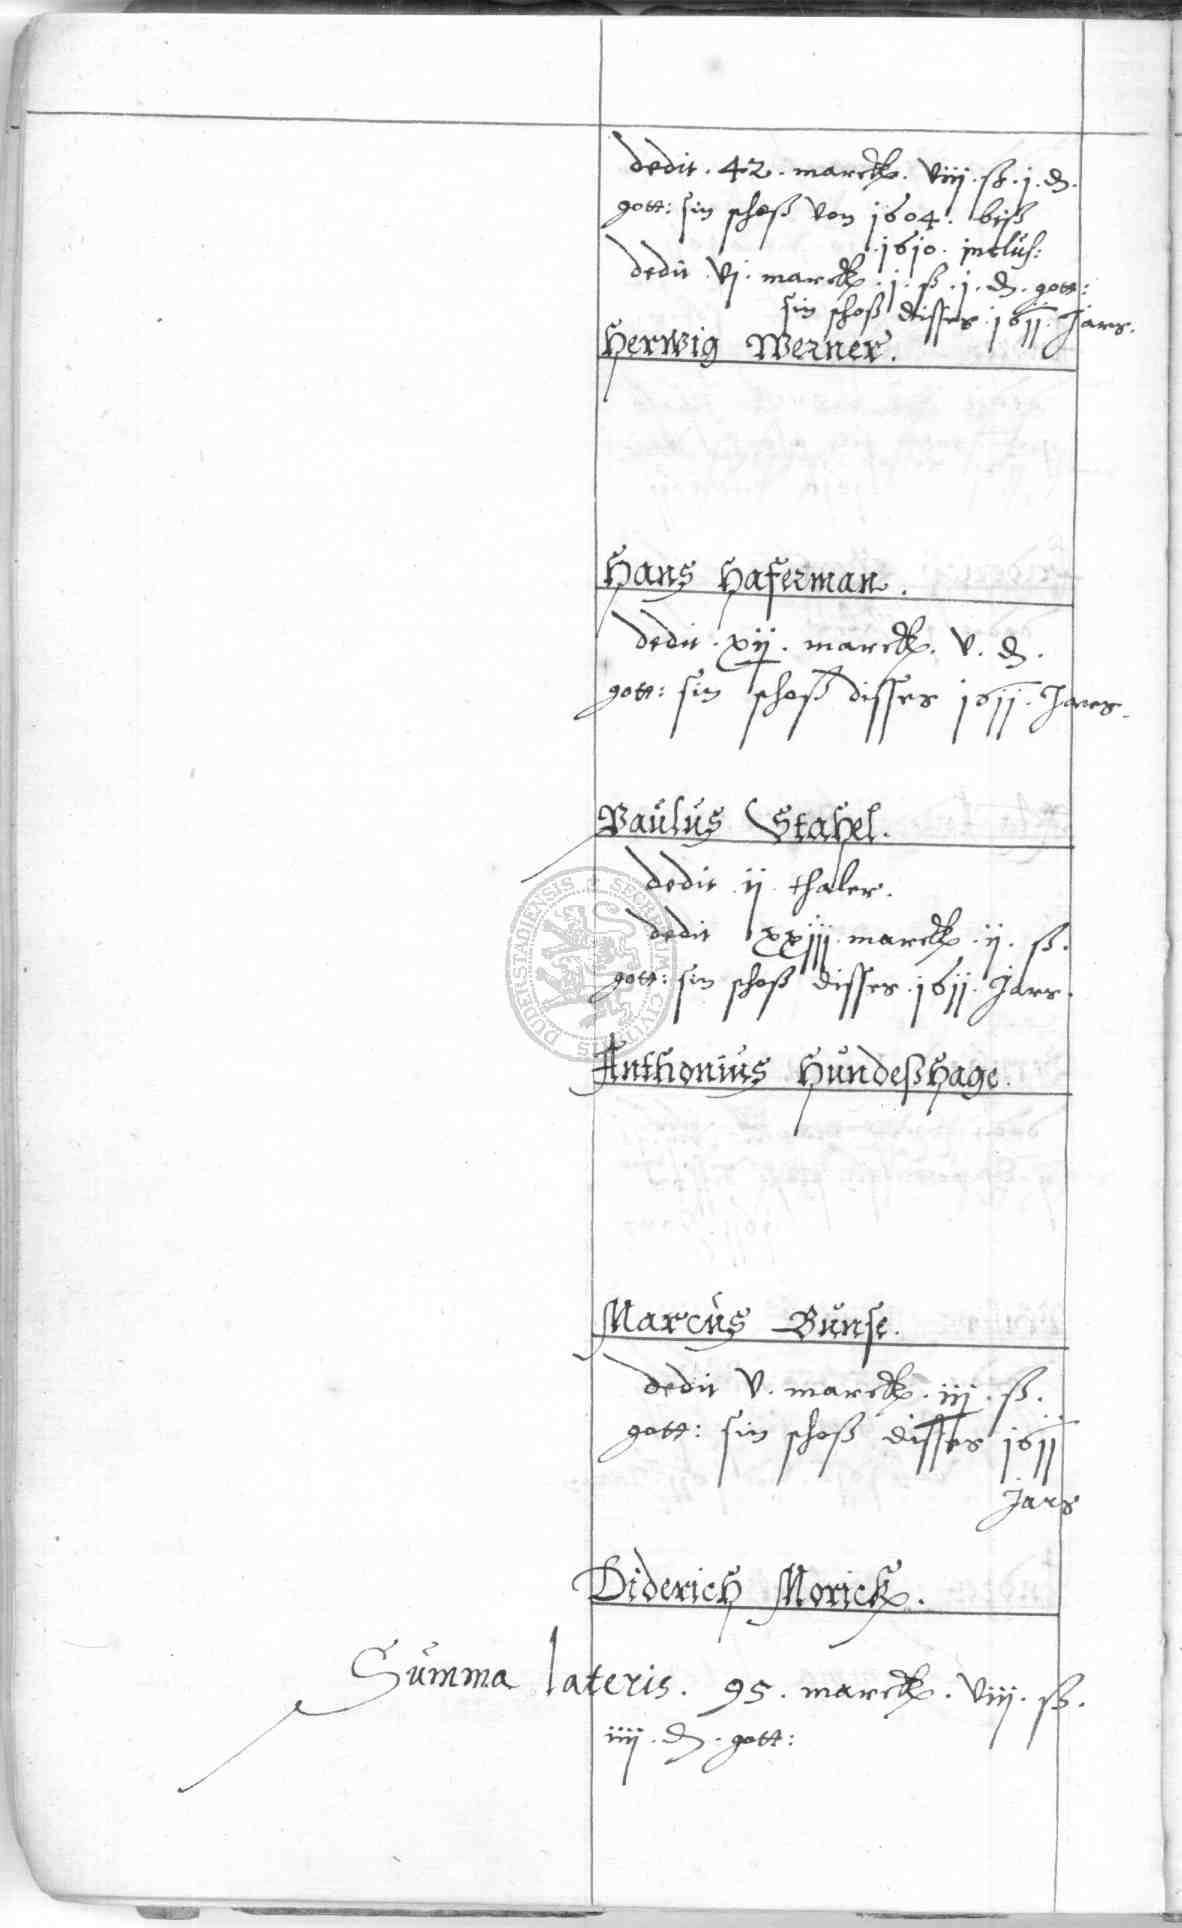 dedit . 42 . marck . viij . ß . j . d .
gott: sin schoß von 1604 . biß
. 1610 . inclus:
dedit . vj . marck . j . ß . j . d . gott:
sin schoß disses . 1611 . Jars .
Herwig Werner .
Hans Haferman .
dedit . xij . marck . v . d .
gott: sin schoß disses 1611 . Jars .
Paulus Stahel .
dedit ij thaler .
dedit xxiij . marck . ij . ß .
gott: sin schoß disses . 1611 . Jars .
Anthonius Hundeßhage .
Marcus Bunse .
dedit v . marck . iij . ß .
gott: sin schoß disses 1611
Jars
Diderich Morick .
Summa lateris . 95 . marck . viij . ß .
iiij . d . gott:
SECRETUM CIVITATIS DUDERSTADIENSIS